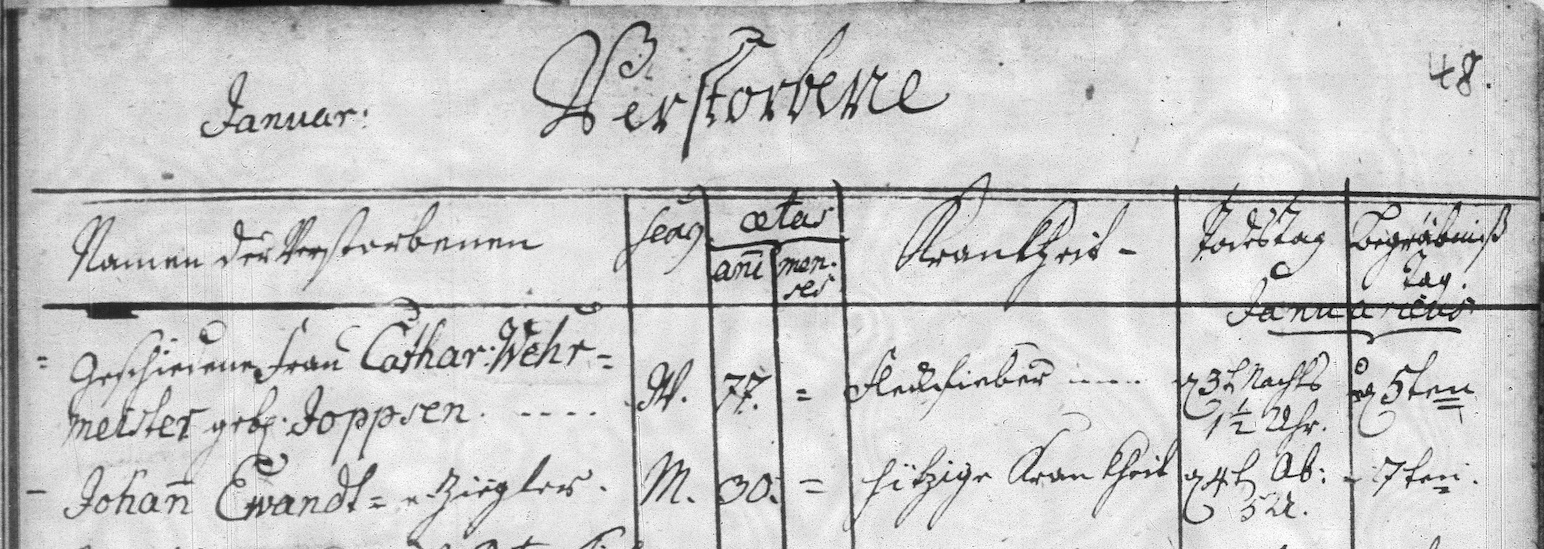 Januar:
Verstorbene
48.
Namen der Verstorbenen
sexus
ætas
añi
men-
ses
Krankheit -
Todestag
Begräbniß
Tag.
Januarius
= Geschiedene Frau Cathar: Wehr=
meister geb. Joppsen. ----
W.
77.
=
Fleckfieber ----
d 3t Nachts
1 1/2 Uhr.
d 5ten
- Johañ Ewandt = Ziegler.
M.
30.
=
hitzige Krankheit
d 4t Ab:
5 U.
- 7ten.